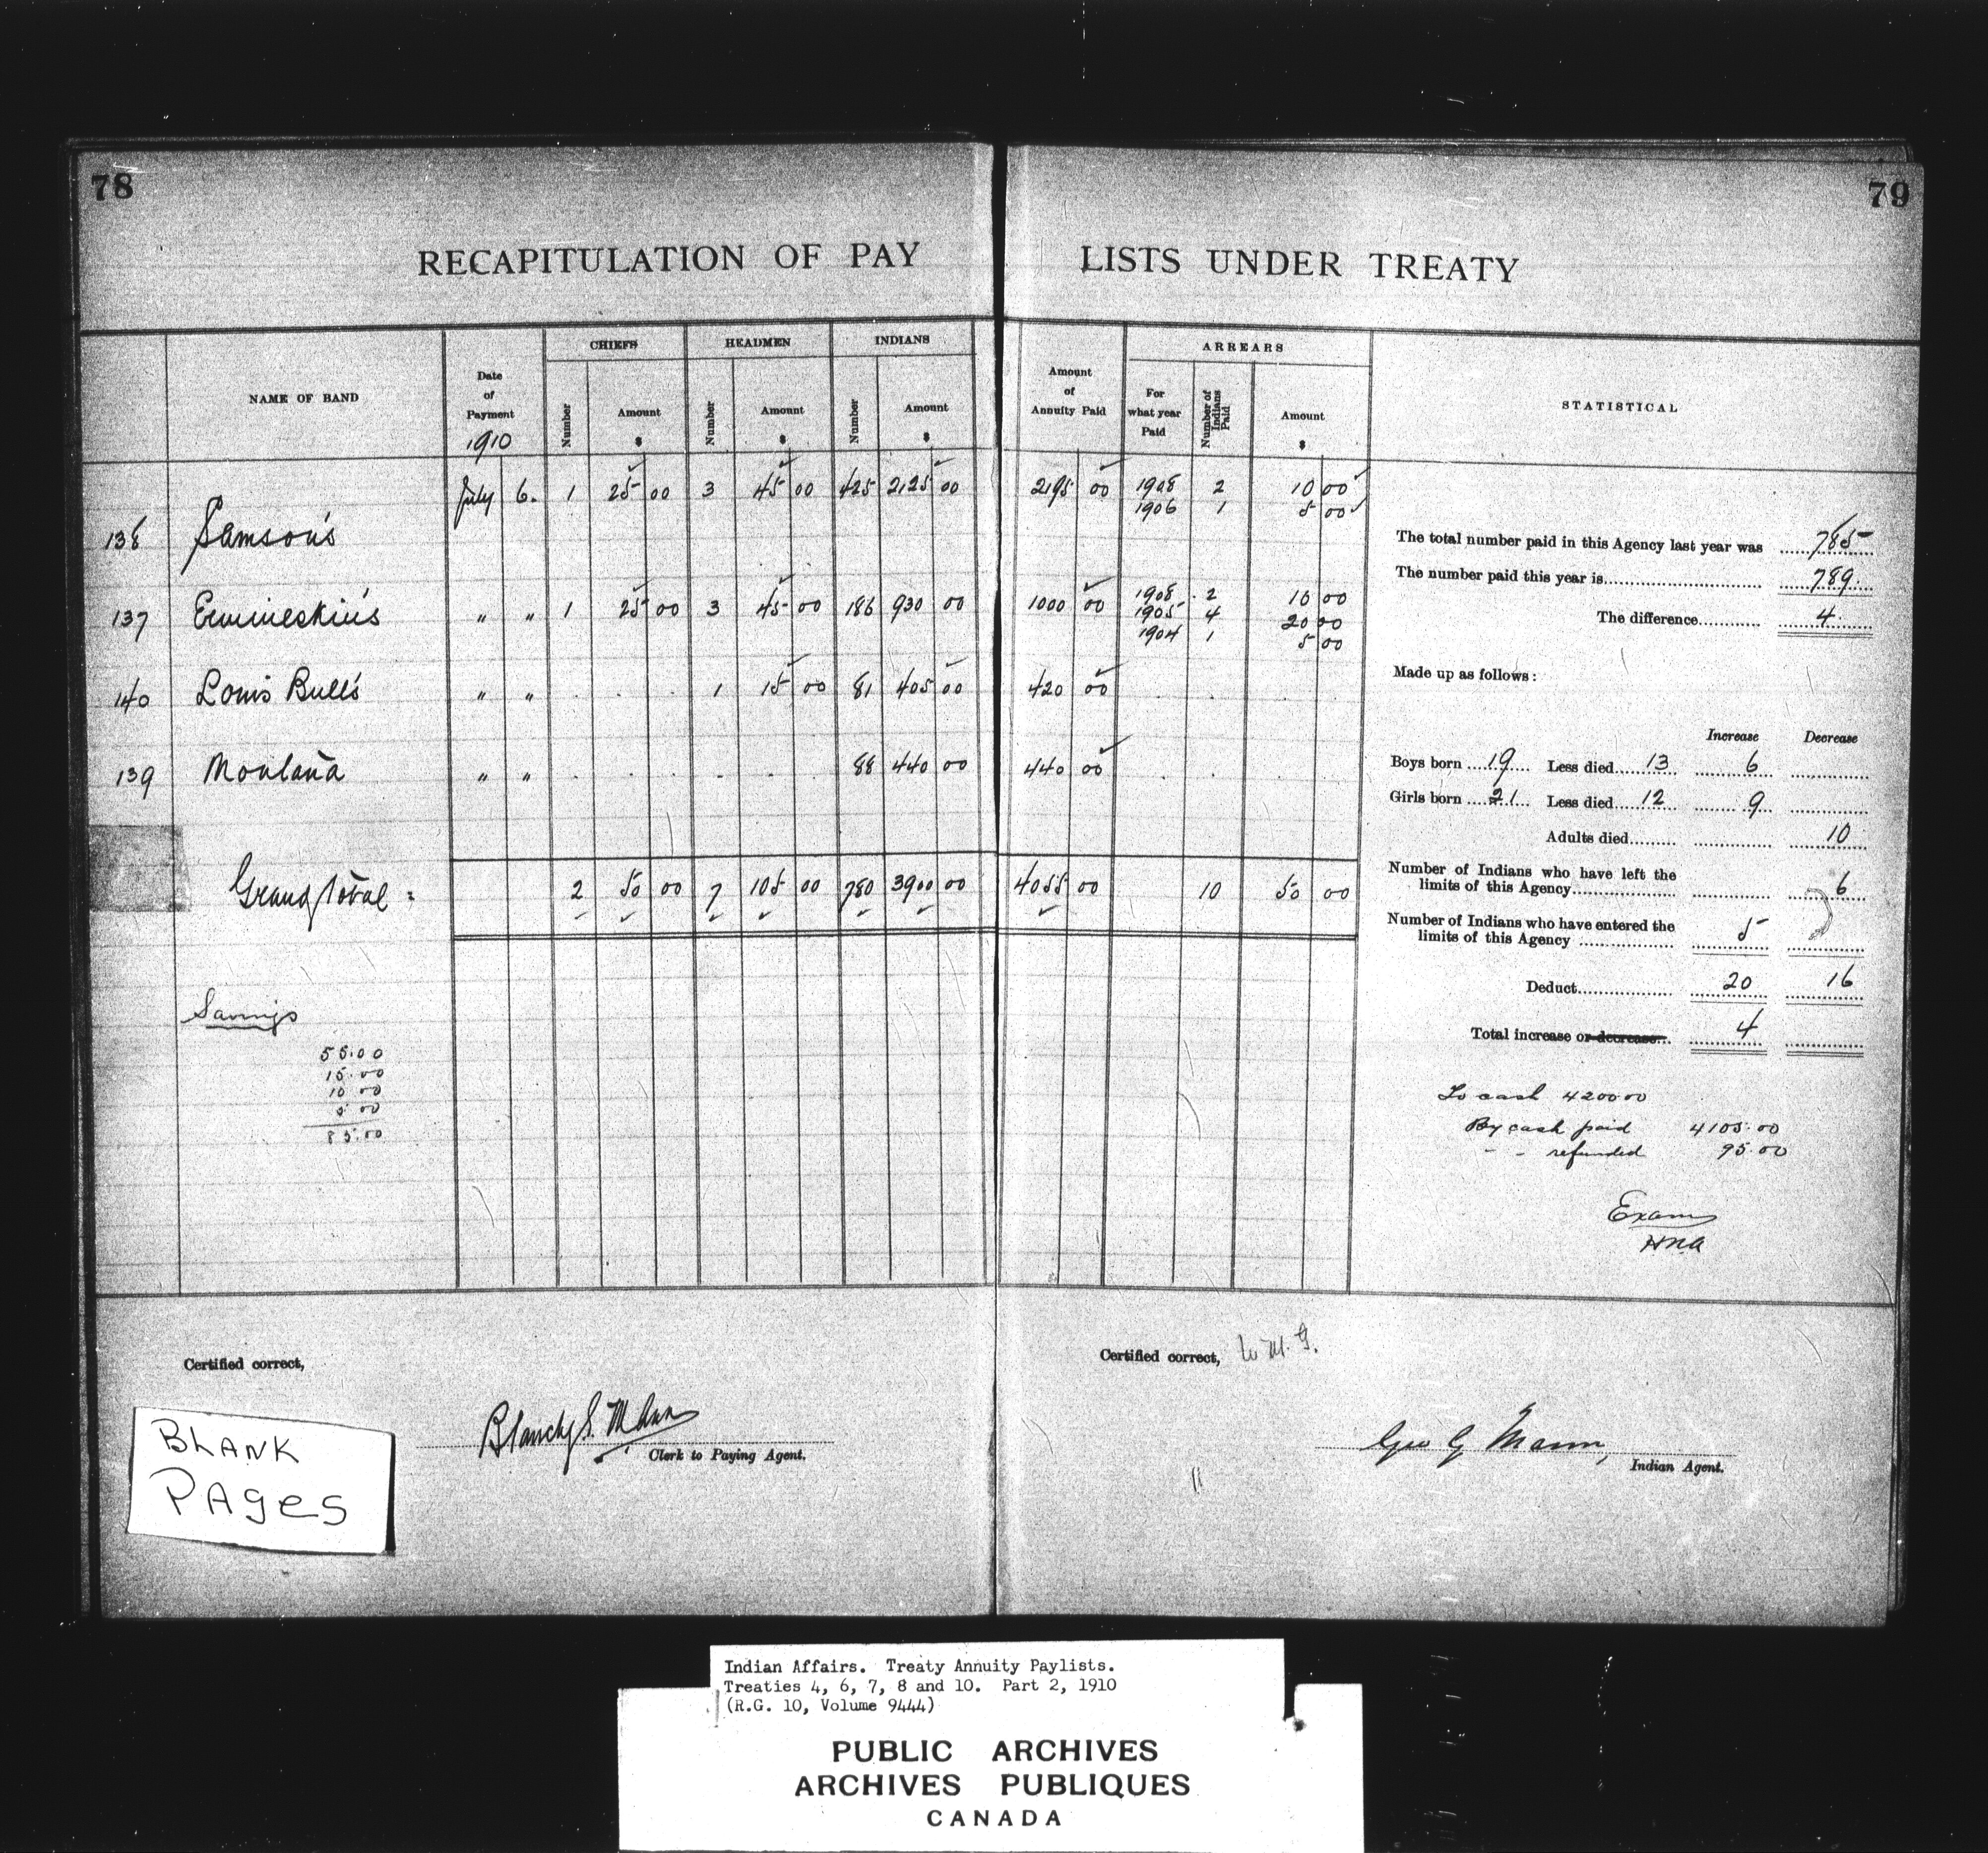 78
79
RECAPITULATION OF PAY LISTS UNDER TREATY
NAME OF BAND
Date of Payment 1910
CHIEFS Number Amount $
HEADMEN Number Amount $
INDIANS Number Amount $
Amount of Annuity Paid
ARREARS
For what year Paid
Number of Indians Paid
Amount $
STATISTICAL
138 Samson's July 6. 1 25 00 3 45 00 425 2125 00 2195 00 1908 2 10 00
1906 1 5 00
137 Ermineskin's " " 1 25 00 3 45 00 186 930 00 1000 00 1908 2 10 00
1905 4 20 00
1904 1 5 00
140 Louis Bull's " " . . . 1 15 00 81 405 00 420 00 . . . .
139 Montana " " . . . . . . 88 440 00 440 00 . . . .
Grand Total = 2 50 00 7 105 00 780 3900 00 4055 00 10 50 00
Savings
55.00
15.00
10 00
5 00
85.00
The total number paid in this Agency last year was 785
The number paid this year is 789
The difference 4
Made up as follows:
Increase Decrease
Boys born 19 Less died 13 6
Girls born 21 Less died 12 9
Adults died 10
Number of Indians who have left the
limits of this Agency 6
Number of Indians who have entered the
limits of this Agency 5
Deduct 20 16
Total increase or decrease 4
To cash 4200 00
By cash paid 4105.00
" " refunded 95.00
Exam
HNA
Certified correct,
Clerk to Paying Agent.
Certified correct, W.M.G.
Geo G Mann,
Indian Agent.
BLANK
PAges
Indian Affairs. Treaty Annuity Paylists.
Treaties 4, 6, 7, 8 and 10. Part 2, 1910
(R.G. 10, Volume 9444)
PUBLIC ARCHIVES
ARCHIVES PUBLIQUES
CANADA